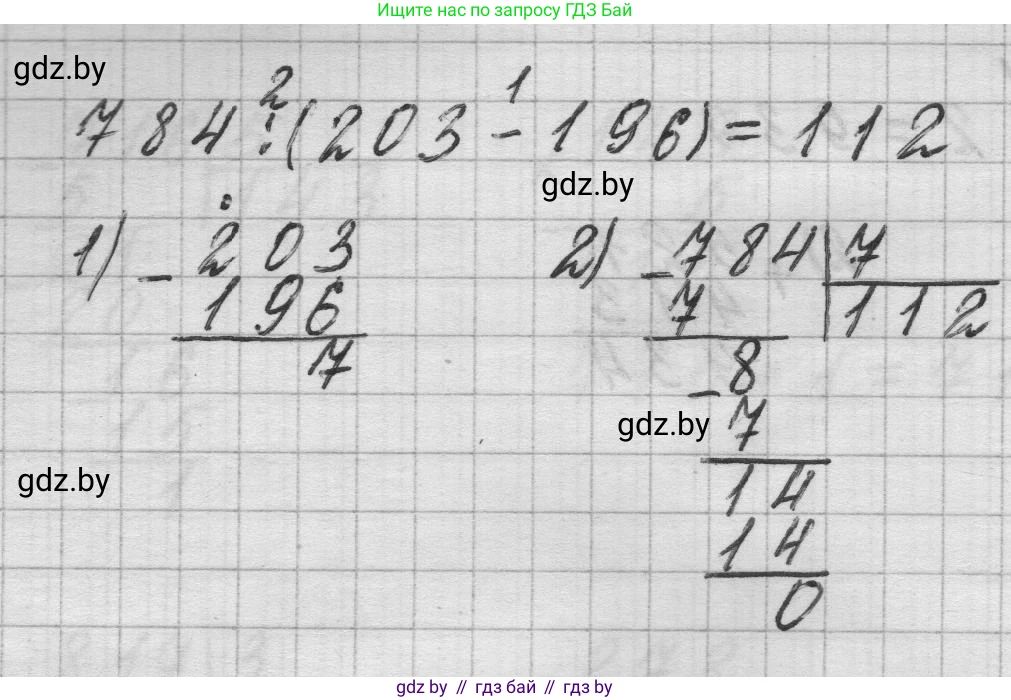 Ищите нас по запросу ГДЗ Бай
gdz.by
2 1
784:(203-196)=112
gdz.by
1) -203
196
7
2) -784|7
7 112
-8
7
gdz.by
14
14
0
gdz.by
gdz by // гдз бай // гдз by